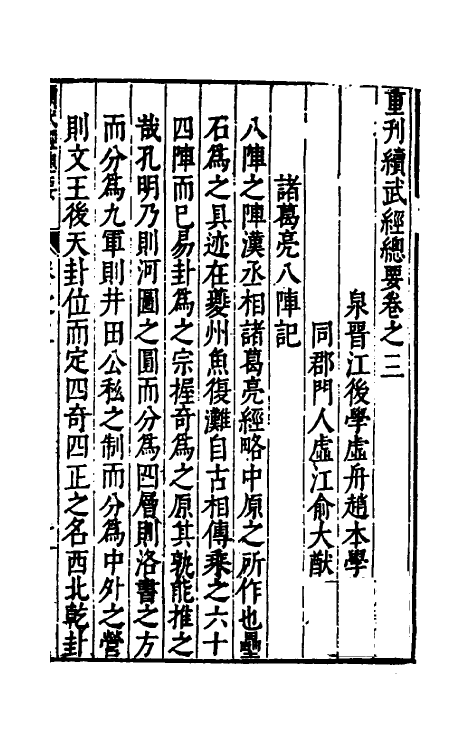 重刋續武經總要卷之三
泉晉江後學虛舟趙本學
同郡門人虛江俞大猷
諸葛亮八陣記
八陣之陣漢丞相諸葛亮經略中原之所作也壘
石爲之具迹在夔州魚復灘自古相傳乘之六十
四陣而已易卦爲之宗握奇爲之原其孰能推之
哉孔明乃則河圖之圓而分爲四層則洛書之方
而分爲九軍則井田公私之制而分爲中外之營
則文王後天卦位而定四奇四正之名西北乾卦